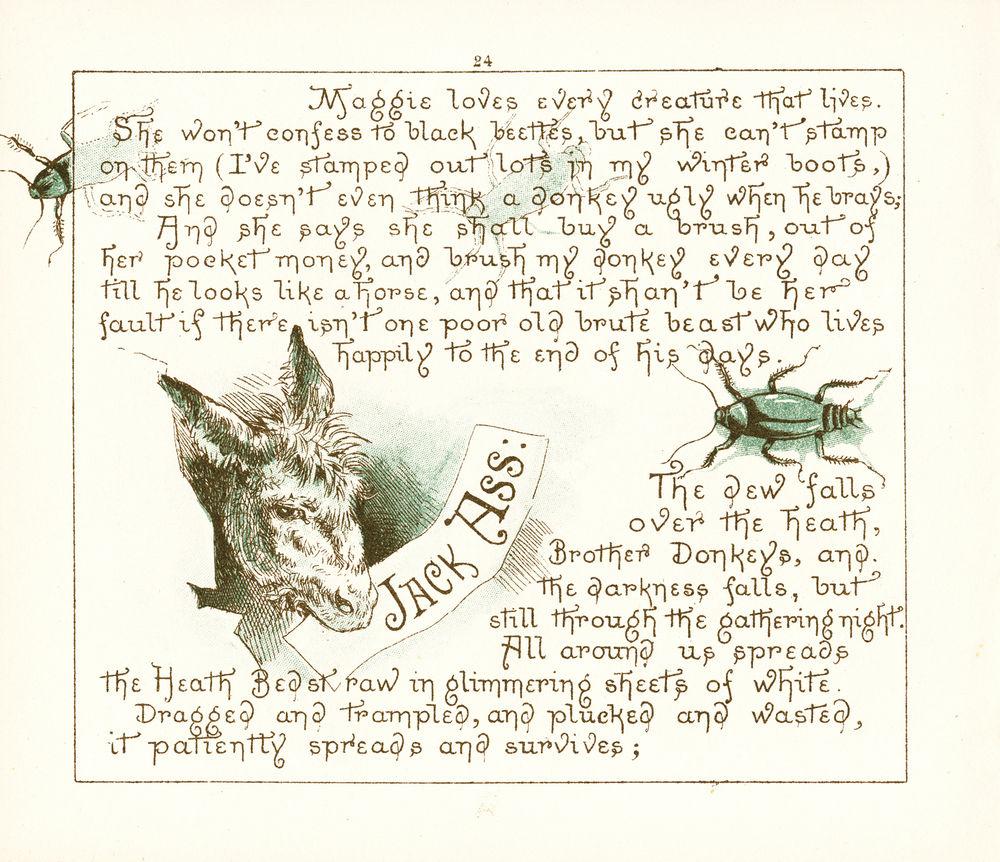 24
Maggie loves every creature that lives.
She won't confess to black beetles, but she can't stamp
on them (I've stamped out lots in my winter boots,)
and she doesn't even think a donkey ugly when he brays;
And she says she shall buy a brush, out of
her pocket money, and brush my donkey every day
till he looks like a horse, and that it shan't be her
fault if there isn't one poor old brute beast who lives
happily to the end of his days.
Jack Ass:
The dew falls
over the heath,
Brother Donkeys, and.
the darkness falls, but
still through the gathering night.
All around us spreads
the Heath Bedstraw in glimmering sheets of white.
Dragged and trampled, and plucked and wasted,
it patiently spreads and survives;